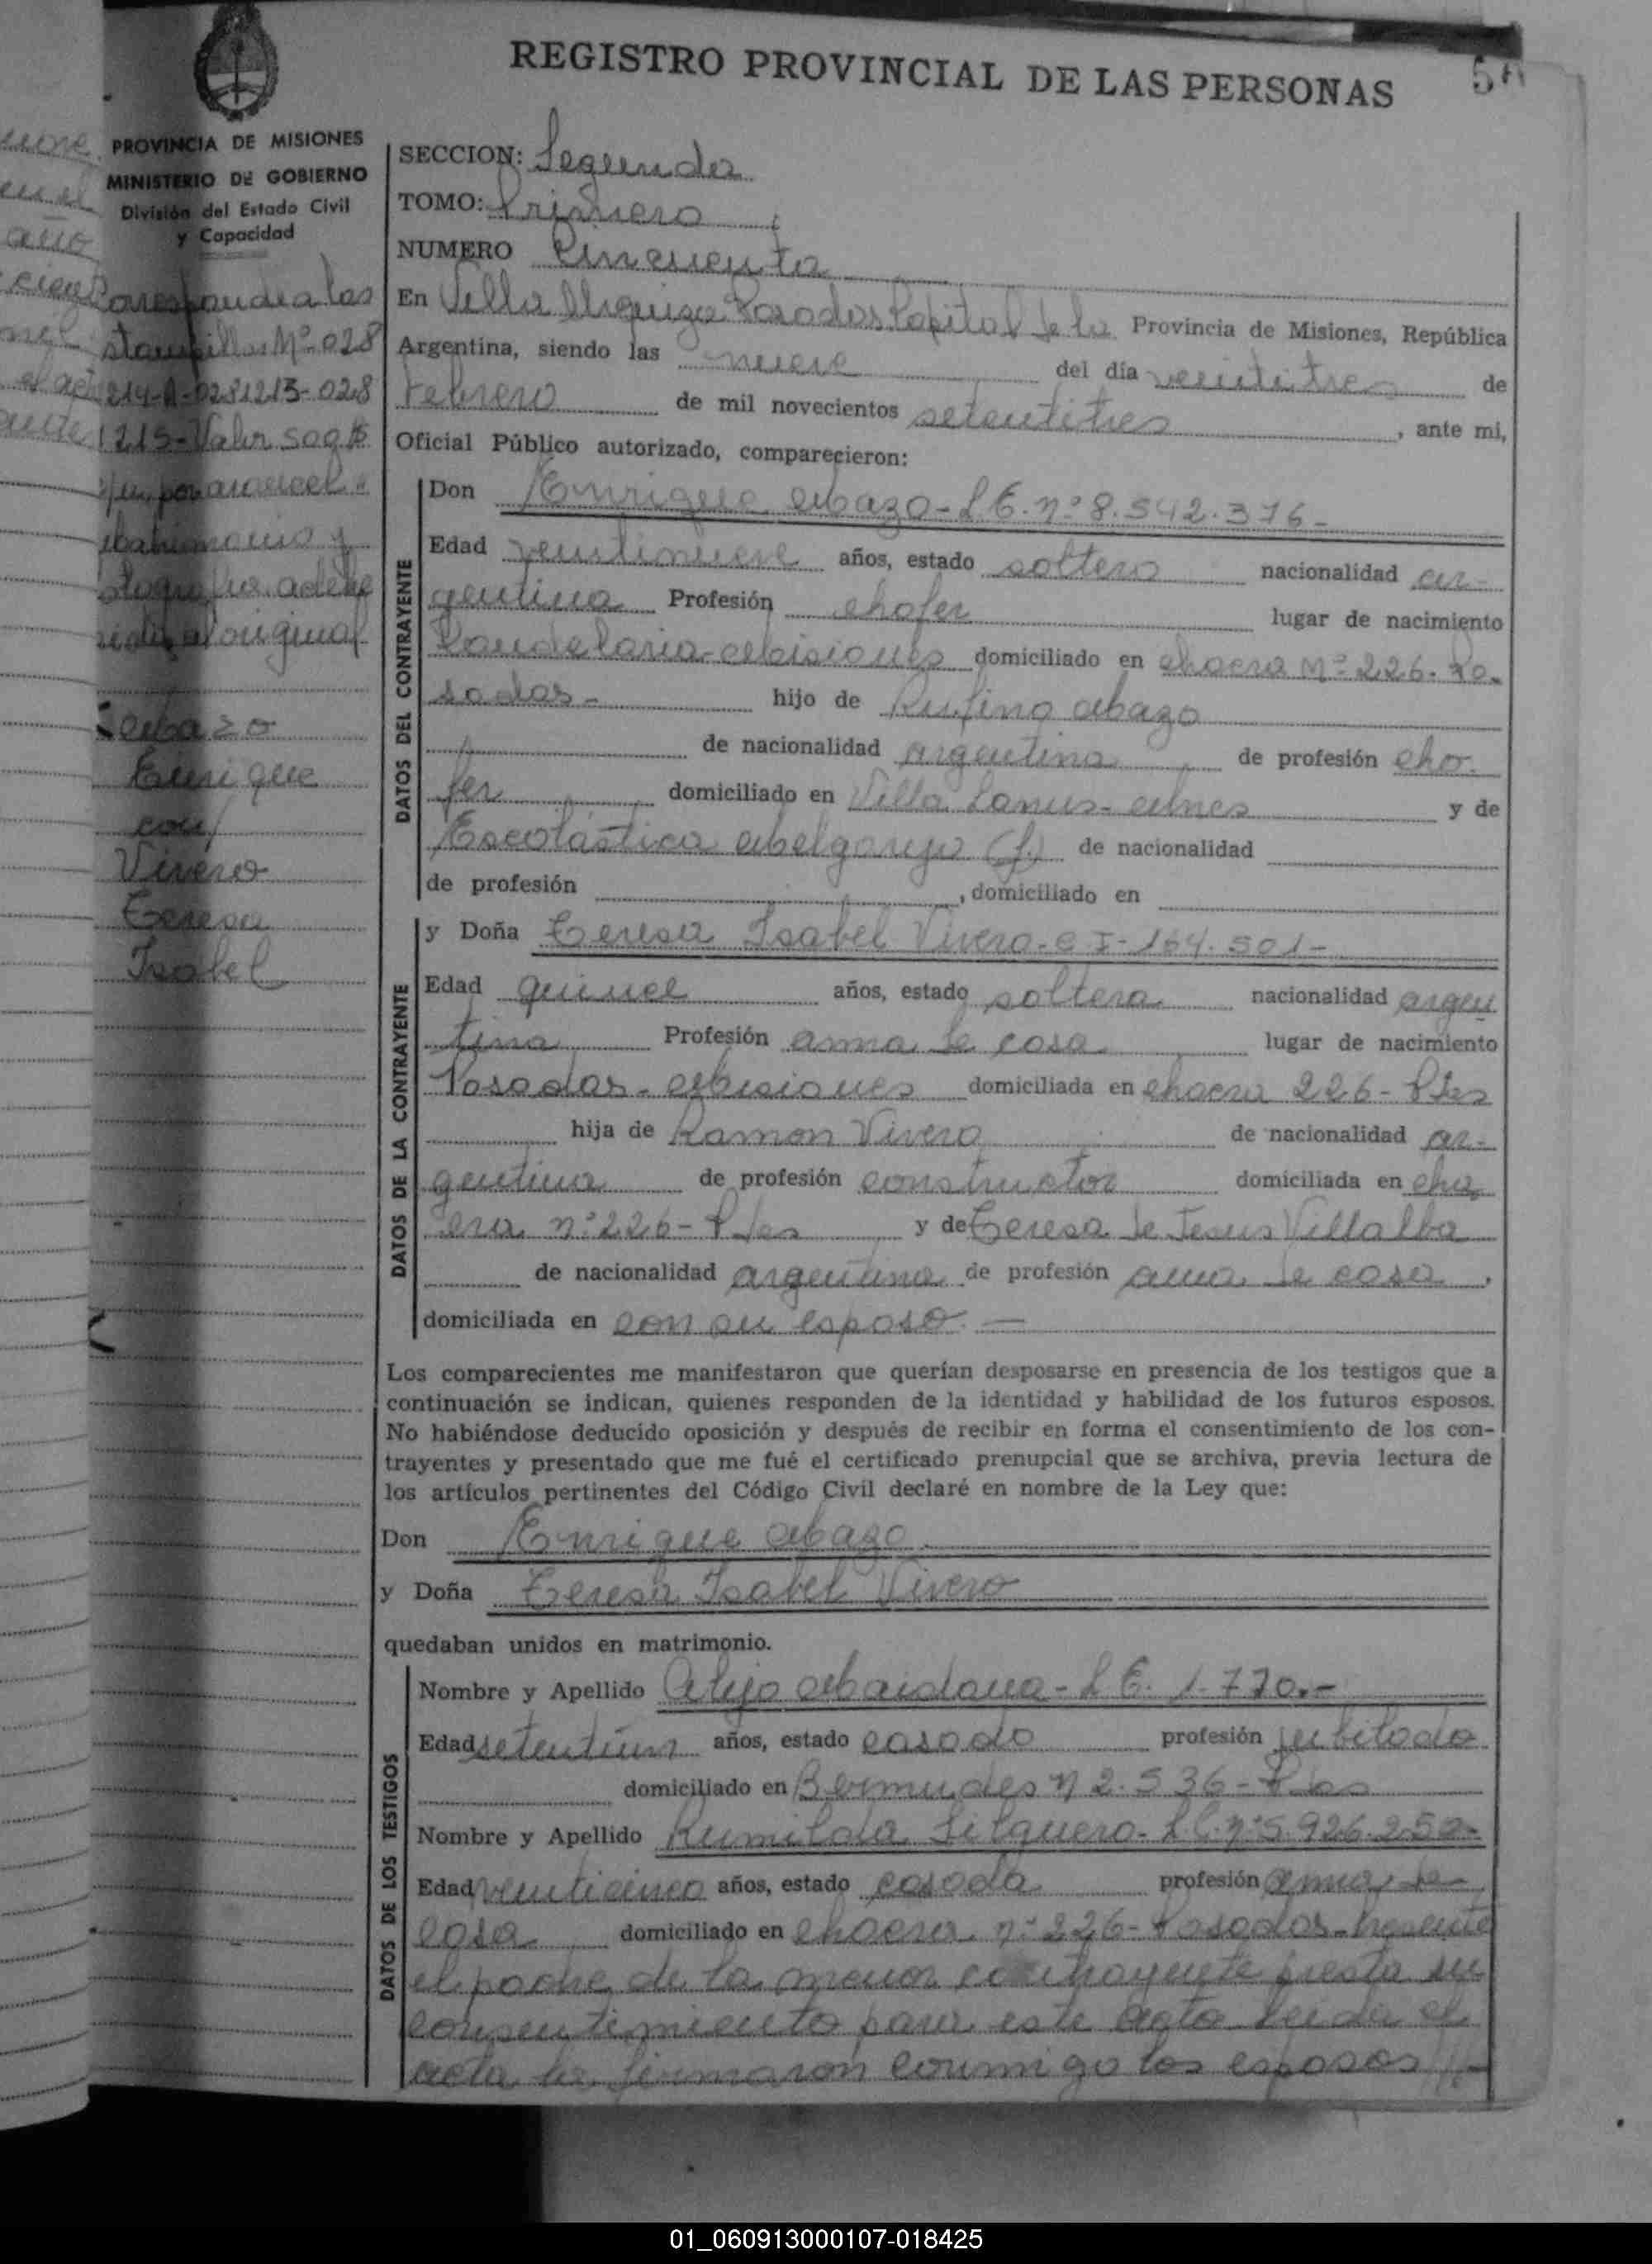 REGISTRO PROVINCIAL DE LAS PERSONAS
PROVINCIA DE MISIONES
MINISTERIO DE GOBIERNO
División del Estado Civil
y Capacidad
Corresponde a las
stampillas Nº 028
214-A-0281213-028
1215-Valor 500
por arancel
al original
Mazo
Enrique
con/
Vivero
Teresa
Isabel
SECCION: Segunda
TOMO: Primero
NUMERO Cincuenta
En Villa Urquiza Posadas Capital de la Provincia de Misiones, República
Argentina, siendo las nueve del día veintitres de
Febrero de mil novecientos setentitres, ante mi,
Oficial Público autorizado, comparecieron:
DATOS DEL CONTRAYENTE
Don Enrique Mazo - L.E. nº 8.542.376-
Edad veintinueve años, estado soltero nacionalidad ar-
gentina Profesión chofer lugar de nacimiento
Candelaria-Misiones domiciliado en chacra Nº 226. Po-
sadas- hijo de Rufino Mazo
de nacionalidad argentina de profesión cho-
fer domiciliado en Villa Lanus-Mnes y de
Escolástica Melgarejo (f.) de nacionalidad
de profesión , domiciliado en
DATOS DE LA CONTRAYENTE
y Doña Teresa Isabel Vivero-C I-164.501-
Edad quince años, estado soltera nacionalidad argen
tina Profesión ama de casa lugar de nacimiento
Posadas-Misiones domiciliada en chacra 226-Pdas
hija de Ramon Vivero de nacionalidad ar-
gentina de profesión constructor domiciliada en cha
cra nº 226-Pdas y de Teresa de Jesus Villalba
de nacionalidad argentina de profesión ama de casa,
domiciliada en con su esposo.—
Los comparecientes me manifestaron que querían desposarse en presencia de los testigos que a
continuación se indican, quienes responden de la identidad y habilidad de los futuros esposos.
No habiéndose deducido oposición y después de recibir en forma el consentimiento de los con-
trayentes y presentado que me fué el certificado prenupcial que se archiva, previa lectura de
los artículos pertinentes del Código Civil declaré en nombre de la Ley que:
Don Enrique Mazo
y Doña Teresa Isabel Vivero
quedaban unidos en matrimonio.
DATOS DE LOS TESTIGOS
Nombre y Apellido Alejo Maidana-L E. 1.770.-
Edad setentiún años, estado casado profesión jubilado
domiciliado en Bermudes n 2.536-Pdas
Nombre y Apellido Rumilda Silguero-L.C. nº 5.926.252-
Edad venticinco años, estado casada profesión ama de
casa domiciliado en chacra nº 226-Posadas-Presente
el padre de la menor contrayente presta su
consentimiento para este acto leida el
acta la firmaron conmigo los esposos
01_060913000107-018425